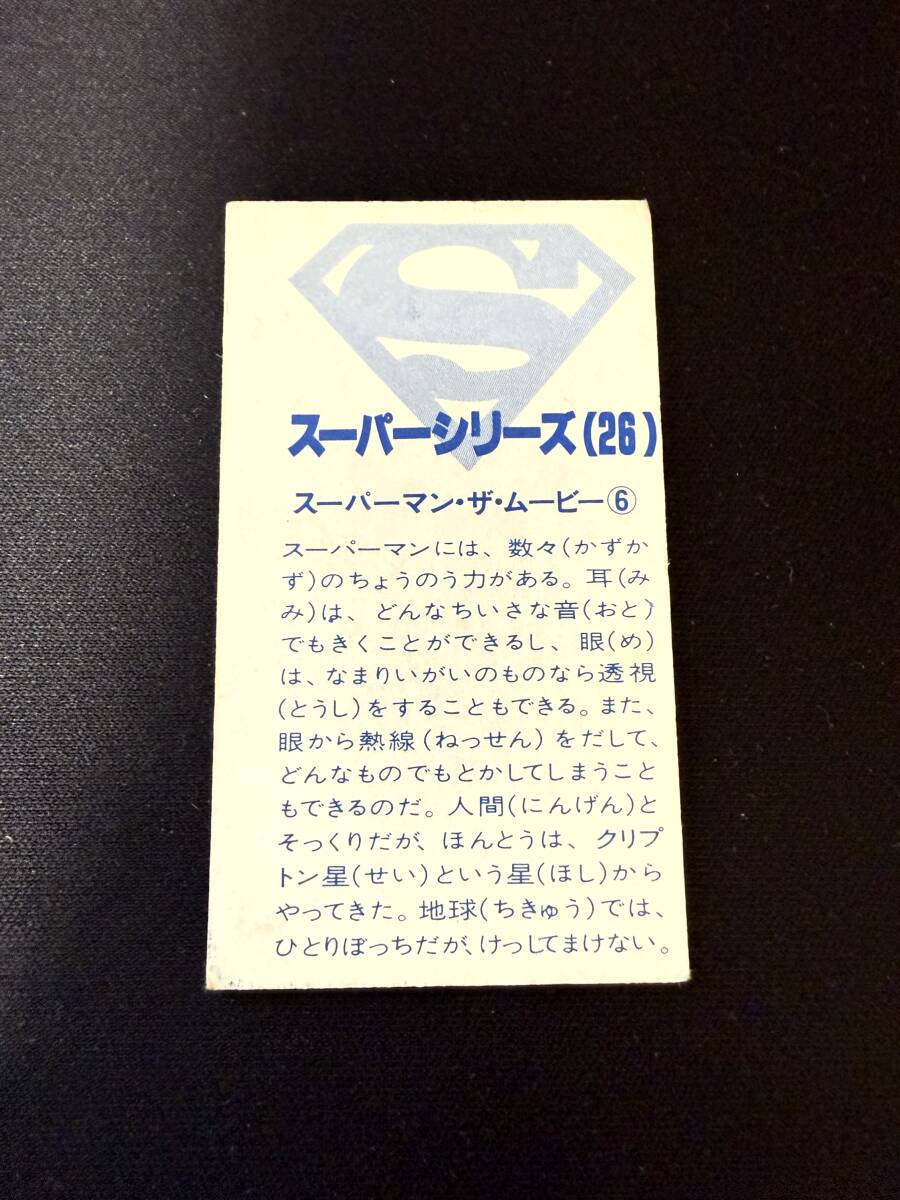 S
スーパーシリーズ(26)
スーパーマン・ザ・ムービー⑥
スーパーマンには、数々(かずか
ず)のちょうのう力がある。耳(み
み)は、どんなちいさな音(おと)
でもきくことができるし、眼(め)
は、なまりいがいのものなら透視
(とうし)をすることもできる。また、
眼から熱線(ねっせん)をだして、
どんなものでもとかしてしまうこと
もできるのだ。人間(にんげん)と
そっくりだが、ほんとうは、クリプ
トン星(せい)という星(ほし)から
やってきた。地球(ちきゅう)では、
ひとりぼっちだが、けっしてまけない。